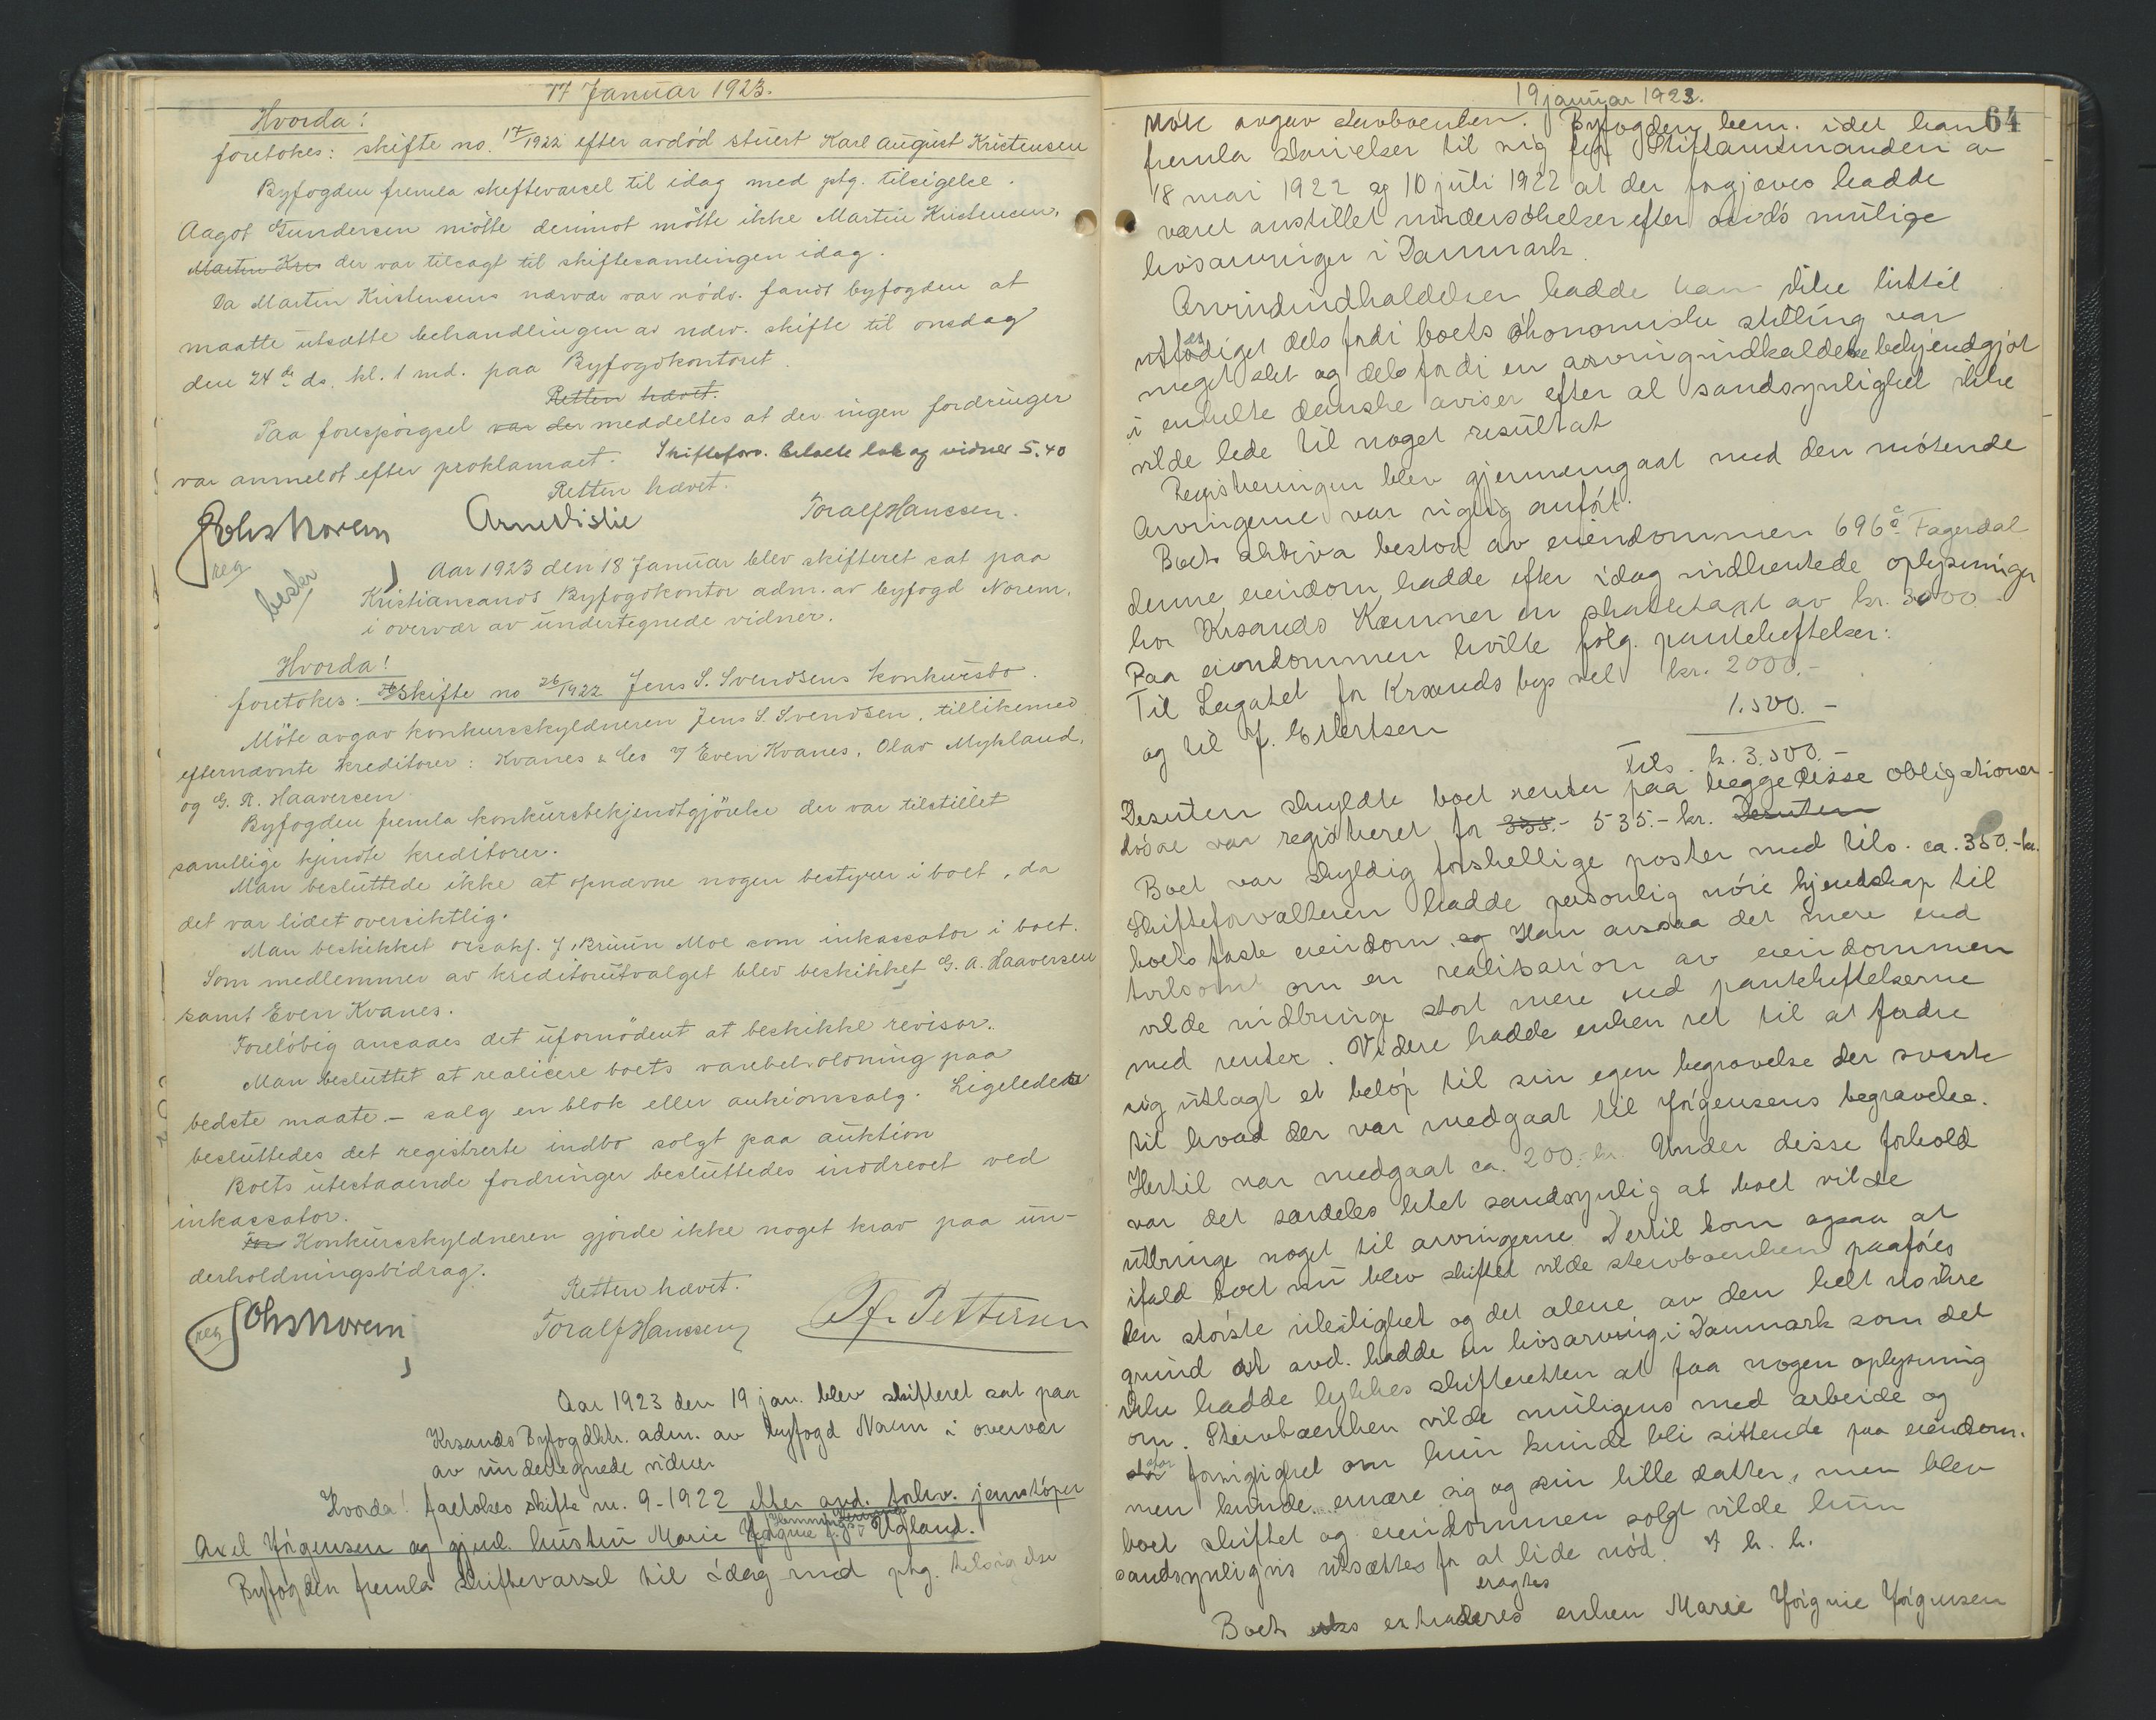 17 Januar 1923.
Hvorda!
foretokes: skifte no. 17/1922 efter avdöd stuert Karl August Kristensen
Byfogden fremla skiftevarsel til idag med ptg. tilsigelse.
Aagot Gundersen mötte derimot mötte ikke Martin Kristensen,
Martin Kris der var tilsagt til skiftesamlingen idag.
Da Martin Kristensens nærvær var nödv. fandt byfogden at
maatte utsætte behandlingen av ndev. skifte til onsdag
den 24de ds. kl. 1 md. paa Byfogdkontoret.
Retten hævet.
Paa forespörgsel var der meddeltes at der ingen fordringer
var anmeldt efter proklamaet. Skifteforv. betalte lab og vidner 5.40
Retten hævet.
Johs Norem Arne Vislie Toralf Hanssen.
reg
beslr
Aar 1923 den 18 Januar blev skifteret sat paa
Kristiansands Byfogdkontor adm. av byfogd Norem,
i overvær av undertegnede vidner.
Hvorda!
foretokes: Skifte no 26/1922 Jens S. Svendsens konkursbo.
Möte avgav konkursskyldneren Jens S. Svendsen, tillikemed
efternævnte kreditorer: Kvanes & Co v/ Even Kvanes, Olav Mykland,
og G. A. Haaversen.
Byfogden fremla konkursbekjendtgjörelse der var tilstillet
samtlige kjendte kreditorer.
Man besluttede ikke at opnævne nogen bestyrer i boet, da
det var lidet oversiktlig.
Man beskikket orsakf. J. Bruun Moe som inkassator i boet.
Som medlemmer av kreditorutvalget blev beskikket G. A. Haaversen
samt Even Kvanes.
Foreløbig ansaaes det ufornödent at beskikke revisor.
Man besluttet at realisere boets varebeholdning paa
bedste maate - salg en blok eller auktionssalg. Ligeledes
besluttedes det registrerte indbo solgt paa auktion
Boets utestaaende fordringer besluttedes inddrevet ved
inkassator.
Konkursskyldneren gjorde ikke noget krav paa un-
derholdningsbidrag.
Retten hævet.
reg Johs Norem Toralf Hanssen Pettersen
Aar 1923 den 19 jan. blev skifteret sat paa
Krsands Byfogdktr. adm. av byfogd Norem i overvær
av undertegnede vidner
Hvorda! foretokes skifte nr. 9-1922 efter avd. forhv. jernstöper
Axel Jörgensen og gjenl. hustru Marie Jörgine f. Ugland.
Byfogden fremla skiftevarsel til idag med ptg. tilsigelse
19 januar 1923.
64
Möte avgav stervboenken. Byfogden bem. idet han
fremla skrivelser til sig fra Stiftamtmanden av
18 mai 1922 og 10 juli 1922 at der forgjæves hadde
været anstillet undersökelser efter avd's mulige
livsarvinger i Danmark.
Arvindindkaldelser hadde han ikke hittil
utfærdiget dels fordi boets ökonomiske stilling var
meget slet og dels fordi en arvingindkaldelse bekjendtgjort
i enkelte danske aviser efter al sandsynlighet ikke
vilde lede til noget resultat
Registreringen blev gjennemgaat med den mötende
Arvingerne var rigtig anfört.
Boets aktiva bestod av eiendommen 696a Fagerdal
denne eiendom hadde efter idag indhentede oplysninger
hos Krsands Kæmner en skattetakst av kr. 3000
Paa eiendommen hvilte fölg. panteheftelser:
Til Legatet for Krsands bys vel kr. 2000.-
og til J. Eilertsen 1.500.-
Tils. kr. 3.500.-
Desuten skyldte boet renter paa begge disse obligationer.
Lösöre var registreret for 335.- 535.- kr. Desuten
Boet var skyldig forskellige poster med tils. ca. 350.-kr.
Skifteforvalteren hadde personlig nöie kjendskap til
boets faste eiendom, og Han ansaa det mere end
tvilsomt om en realisation av eiendommen
vilde indbringe stort mere end panteheftelserne
med renter. Videre hadde enken ret til at fordre
sig utlagt et belöp til sin egen begravelse der svarte
til hvad der var medgaat til Jörgensens begravelse.
Hertil var medgaat ca. 200.- kr. Under disse forhold
var det særdeles litet sandsynlig at boet vilde
utbringe noget til arvingerne Dertil kom ogsaa at
ifald boet nu blev skiftet vilde stervboenken paaföies
den störste uleilighet og det alene av den helt usikre
grund at avd. hadde en livsarving i Danmark som det
ikke hadde lykkes skifteretten at faa nogen oplysning
om. Stervboenken vilde muligens med arbeide og
stor forsigtighet om hun kunde bli sittende paa eiendom-
men kunde ernære sig og sin lille datter, men blev
boet skiftet og eiendommen solgt vilde hun
sandsynligvis utsættes for at lide nöd. I h. h.
eragtes
Boets extraderes enken Marie Jörgine Jörgensen